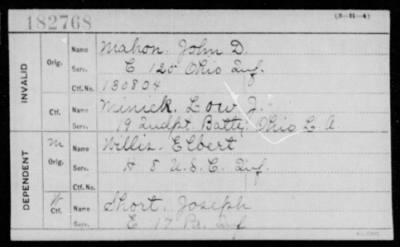 182768
(3-11-4)
INVALID
Orig.
Name Mahon. John D.
Serv. C 120 Ohio Inf.
Ctf. No. 130804
Ctf.
Name Minick. Low J.
Serv. 19 Indpt Batty. Ohio L A
DEPENDENT
M
Orig.
Name Willis. Elbert
Serv. H 8 U.S.C. Inf.
Ctf. No.
W
Ctf.
Name Short. Joseph
Serv. E 17 Pa. Inf